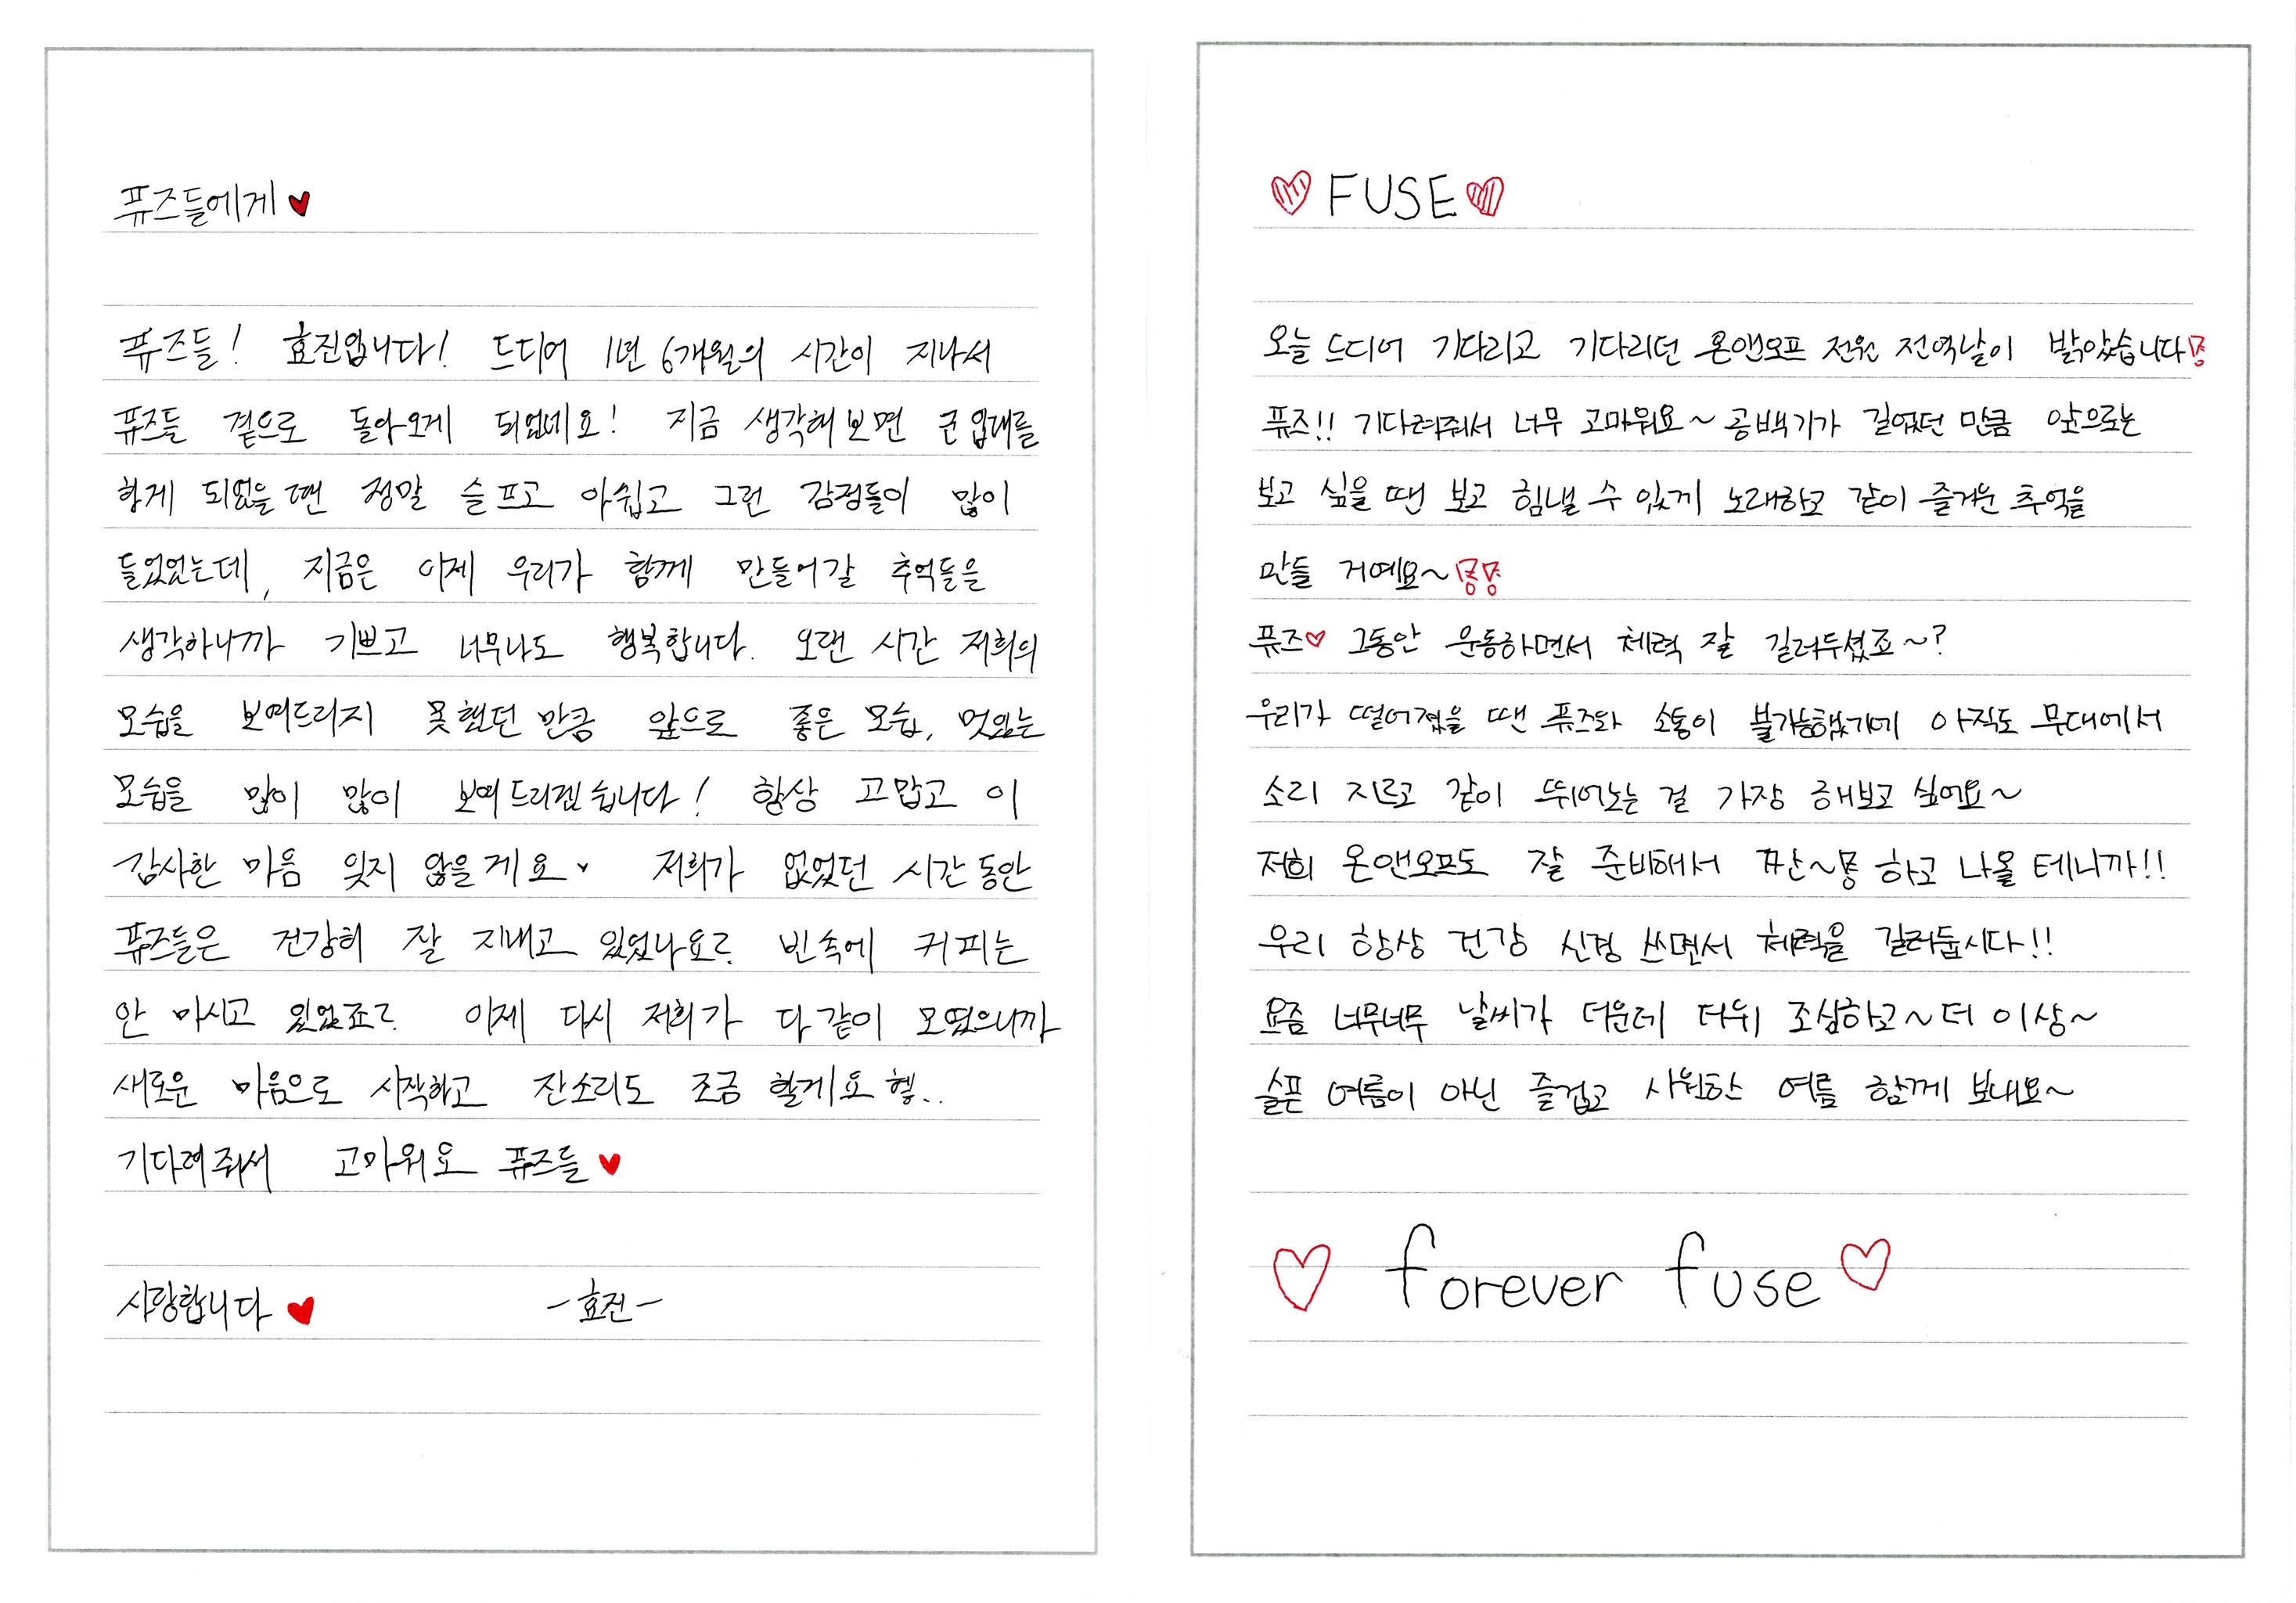 퓨즈들에게 ♥
퓨즈들! 효진입니다! 드디어 1년 6개월의 시간이 지나서
퓨즈들 곁으로 돌아오게 되었네요! 지금 생각해보면 군 입대를
하게 되었을 땐 정말 슬프고 아쉽고 그런 감정들이 많이
들었었는데, 지금은 이제 우리가 함께 만들어갈 추억들을
생각하니까 기쁘고 너무나도 행복합니다. 오랜 시간 저희의
모습을 보여드리지 못했던 만큼 앞으로 좋은 모습, 멋있는
모습을 많이 많이 보여드리겠습니다! 항상 고맙고 이
감사한 마음 잊지 않을게요. 저희가 없었던 시간동안
퓨즈들은 건강히 잘 지내고 있었나요? 빈속에 커피는
안 마시고 있었죠? 이제 다시 저희가 다같이 모였으니까
새로운 마음으로 시작하고 잔소리도 조금 할게요 헿..
기다려줘서 고마워요 퓨즈들 ♥
사랑합니다 ♥ -효진-
♥ FUSE ♥
오늘 드디어 기다리고 기다리던 온앤오프 전원 전역날이 밝았습니다
퓨즈!! 기다려줘서 너무 고마워요~ 공백기가 길었던 만큼 앞으로는
보고 싶을 땐 보고 힘낼 수 있게 노래하고 같이 즐거운 추억을
만들 거예요~
퓨즈♡ 그동안 운동하면서 체력 잘 길러두셨죠~?
우리가 떨어졌을 땐 퓨즈와 소통이 불가능했기에 아직도 무대에서
소리 지르고 같이 뛰어노는 걸 가장 해보고 싶어요~
저희 온앤오프도 잘 준비해서 하고 나올 테니까!!
우리 항상 건강 신경 쓰면서 체력을 길러둡시다!!
요즘 너무너무 날씨가 더운데 더위 조심하고~ 더 이상~
슬픈 여름이 아닌 즐겁고 시원한 여름 함께 보내요~
♡ forever fuse ♡